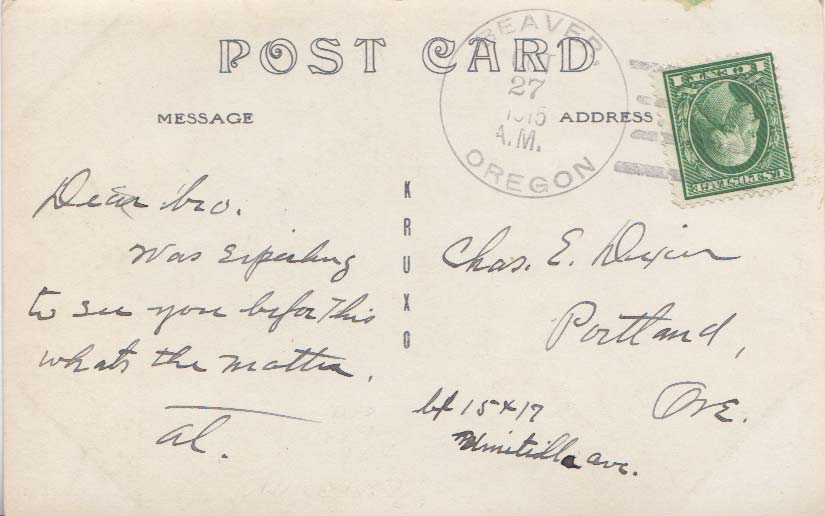 POST CARD
BEAVER,
27
1915
A.M.
OREGON
1 CENT 1
U.S. POSTAGE
MESSAGE
ADDRESS
Dear bro.
Was Expecting
to see you befor this
whats the matter.
Al.
KRUXO
Chas. E. Dixon
Portland,
Ore.
15 x 17
Umitilla ave.